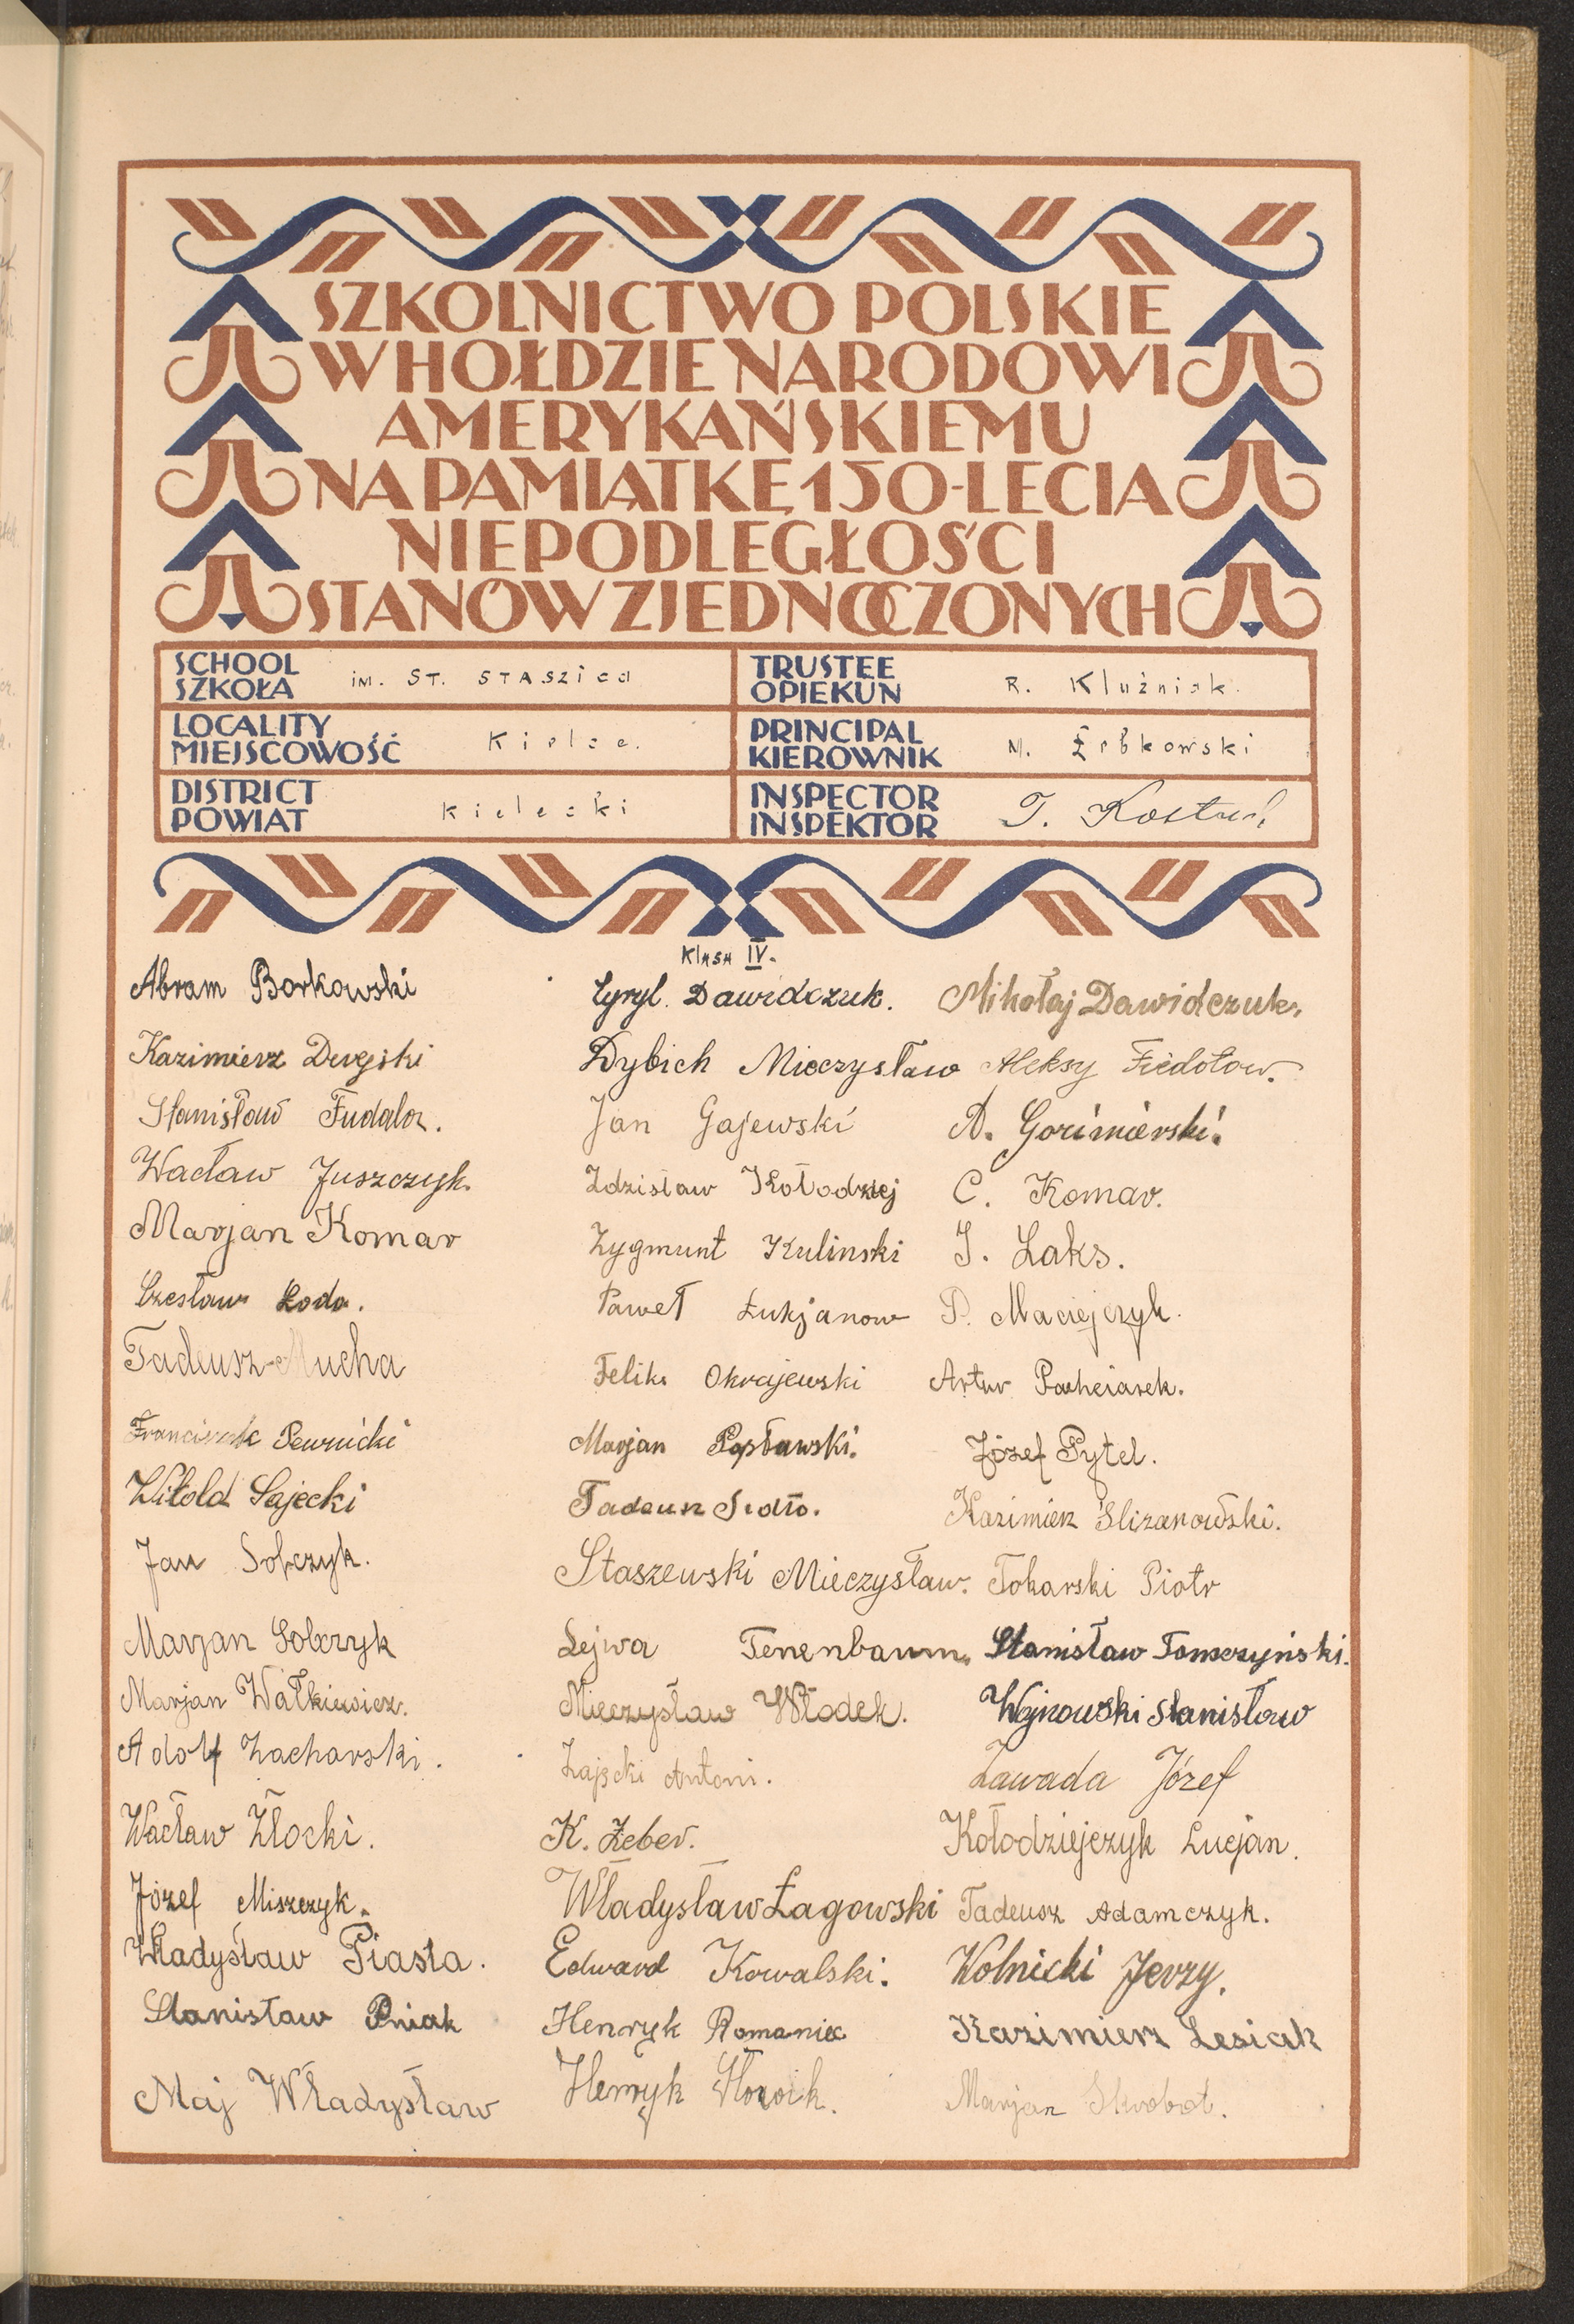 SZKOLNICTWO POLSKIE
W HOŁDZIE NARODOWI
AMERYKAŃSKIEMU
NA PAMIĄTKĘ 150-LECIA
NIEPODLEGŁOŚCI
STANÓW ZJEDNOCZONYCH
SCHOOL
SZKOŁA im. ST. STASZica
TRUSTEE
OPIEKUN R. Kluźniak.
LOCALITY
MIEJSCOWOŚĆ Kielce.
PRINCIPAL
KIEROWNIK M.
DISTRICT
POWIAT Kielecki
INSPECTOR
INSPEKTOR T. Kostuch
Klasa IV.
Abram Borkowski Cyryl. Dawidczuk. Mikołaj Dawidczuk.
Kazimierz Dybich Mieczysław Aleksy Fiedotow.
Stanisław Fudala. Jan Gajewski A.
Wacław Juszczyk. Zdzisław Kołodziej C. Komar.
Marjan Komar Zygmunt Kulinski J. Laks.
Czesław Łoda. Paweł Łukjanow P. Maciejczyk.
Tadeusz Mucha Feliks Okrajewski Artur
Franciszek Pewnicki Marjan Popławski. Józef Pytel.
Witold Sajecki Tadeusz Sidło. Kazimierz Slizanowski.
Jan Sobczyk. Staszewski Mieczysław. Tokarski Piotr
Marjan Sobczyk Lejwa Tenenbaum. Stanisław Tomczyński.
Marjan Wałkiewicz. Mieczysław Włodek. Wojnowski Stanisław
Adolf Zacharski. Zajęcki Antoni. Zawada Józef
Wacław Złocki. K. Żeber. Kołodziejczyk Lucjan.
Józef Miszczyk. Władysław Łagowski Tadeusz Adamczyk.
Władysław Piasta. Edward Kowalski. Wolnicki Jerzy.
Stanisław Pniak Henryk Romaniec Kazimierz Lesiak
Maj Władysław Henryk Marjan Skrobot.